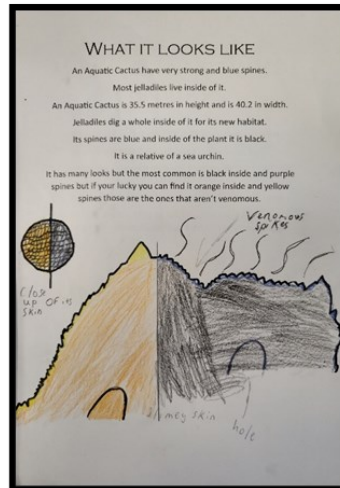 WHAT IT LOOKS LIKE
An Aquatic Cactus have very strong and blue spines.
Most jelladiles live inside of it.
An Aquatic Cactus is 35.5 metres in height and is 40.2 in width.
Jelladiles dig a whole inside of it for its new habitat.
Its spines are blue and inside of the plant it is black.
It is a relative of sea urchin.
It has many looks but the most common is black inside and purple
spines but if your lucky you can find it orange inside and yellow
spines those are the ones that aren't venomous.
Venomous
spikes
Close
up of its
skin
slimey skin
hole